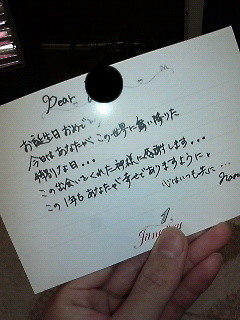 Dear
お誕生日おめでとう
今日はあなたが、この世界に舞い降りた
特別な日・・・
この出会いをくれた神様に感謝します・・・
この1年もあなたが幸せでありますように。
心はいつも共に…
from